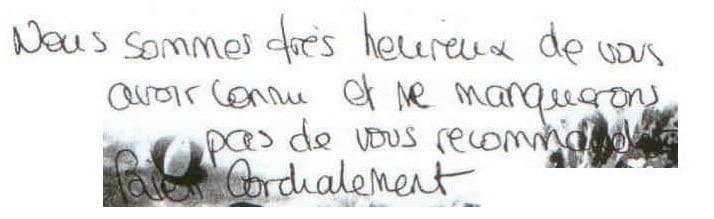 Nous sommes très heureux de vous
avoir connu et ne manquerons
pas de vous recommander
Cordialement